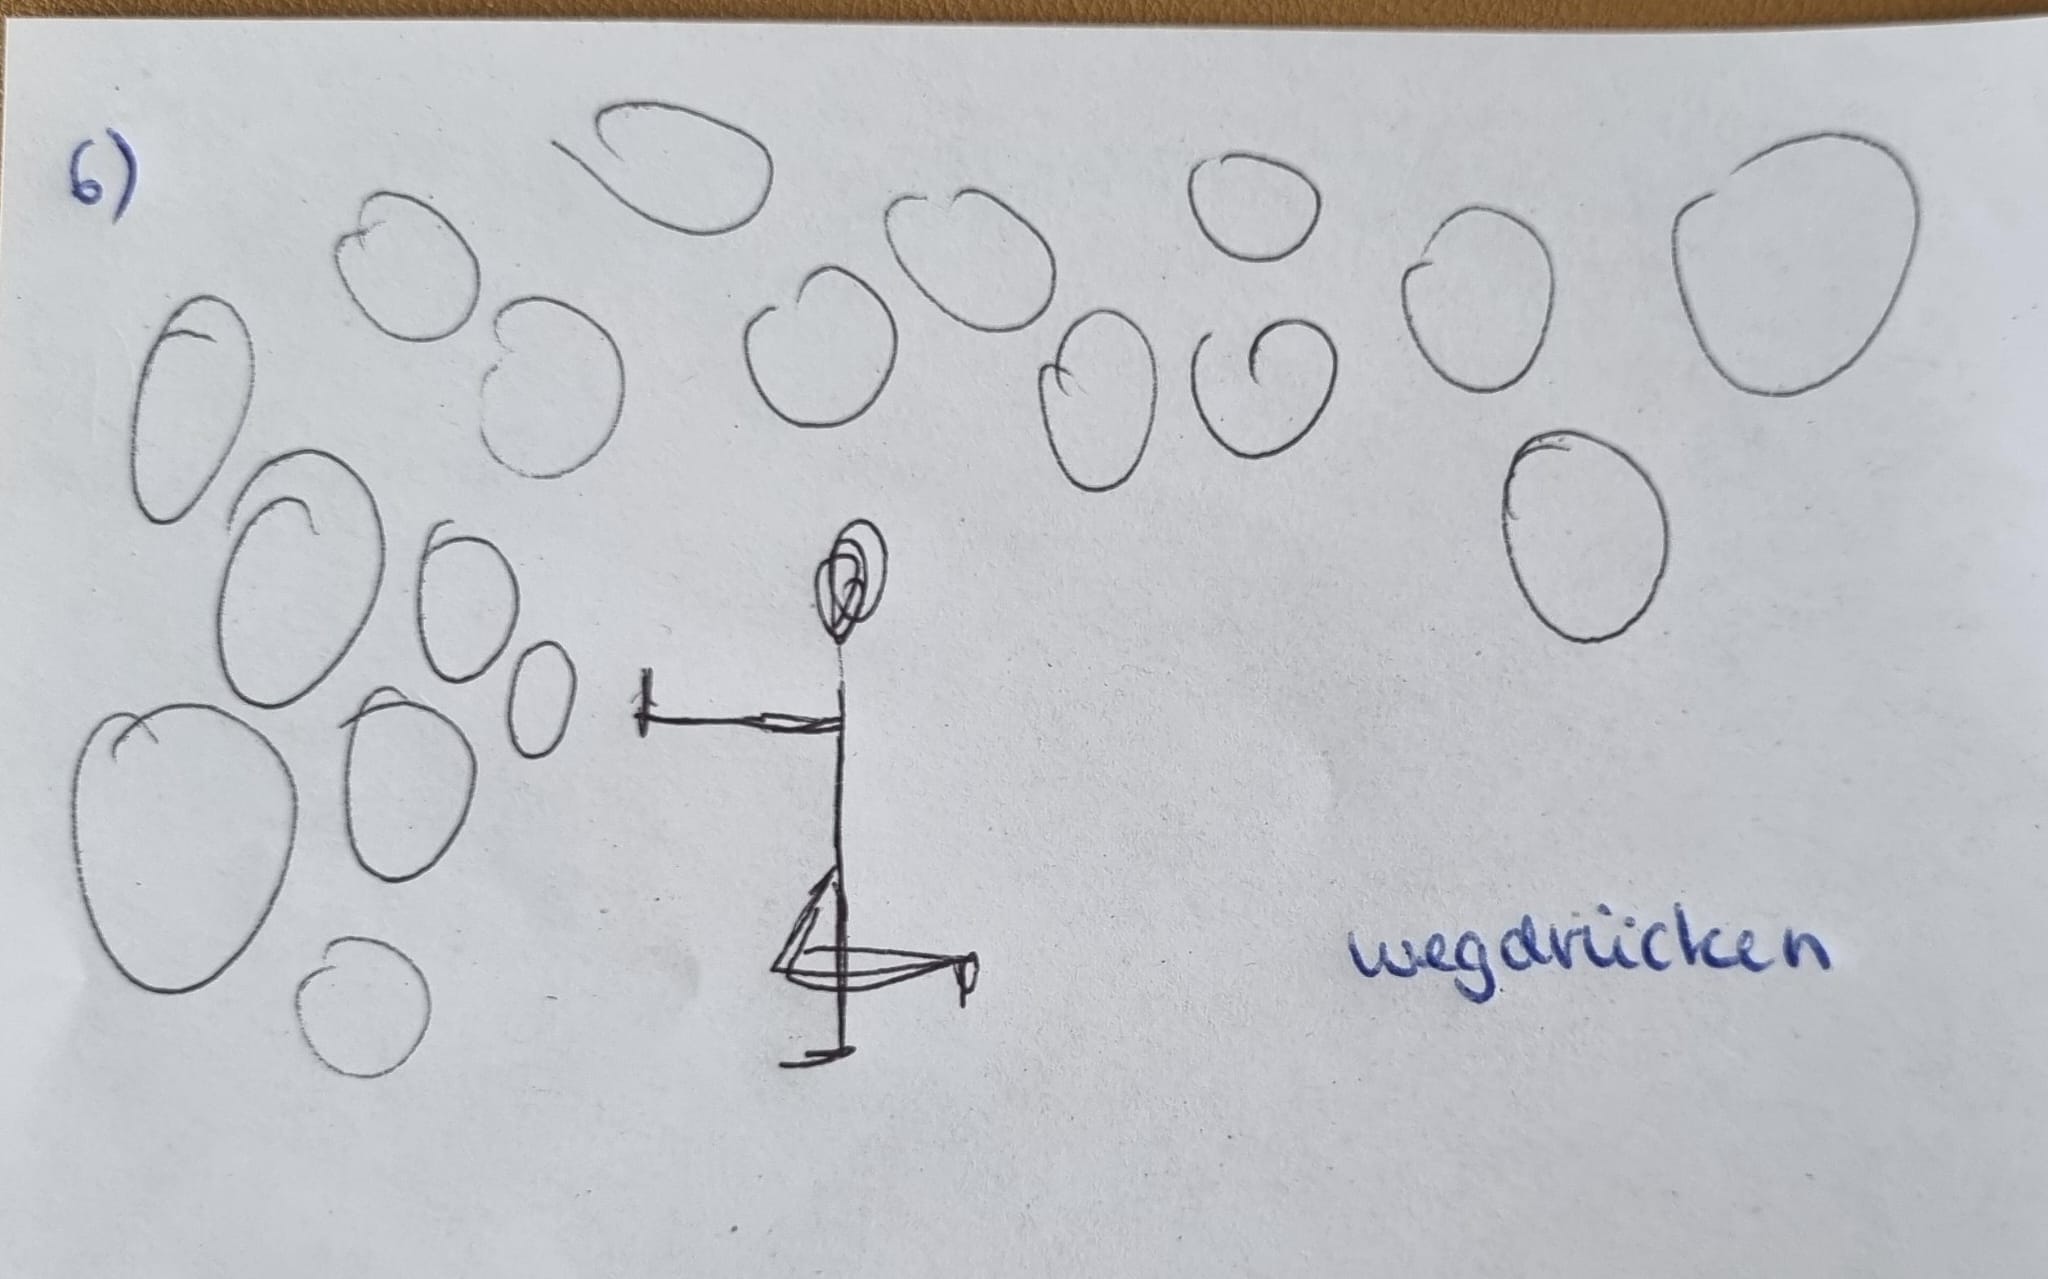 6)
wegdrücken